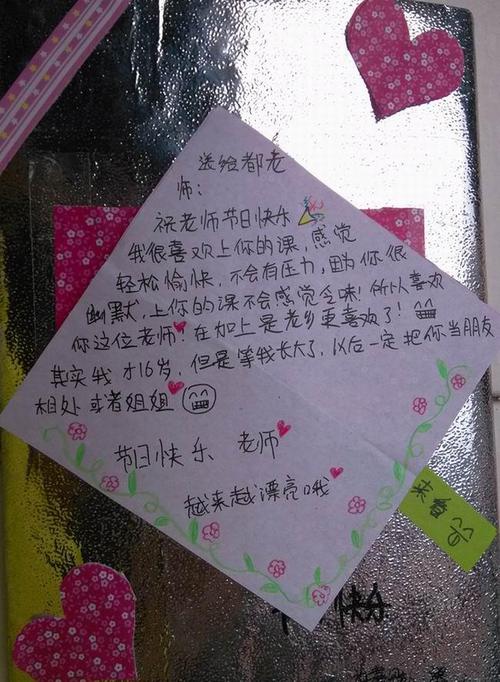 送给都老
师:
祝老师节日快乐
我很喜欢上你的课,感觉
轻松愉快,不会有压力,因为你很
幽默,上你的课不会感觉乏味!所以喜欢
你这位老师!在加上是老乡更喜欢了!
其实我才16岁,但是等我长大了,以后一定把你当朋友
相处或者姐姐
节日快乐 老师
越来越漂亮哦
来看
快尓